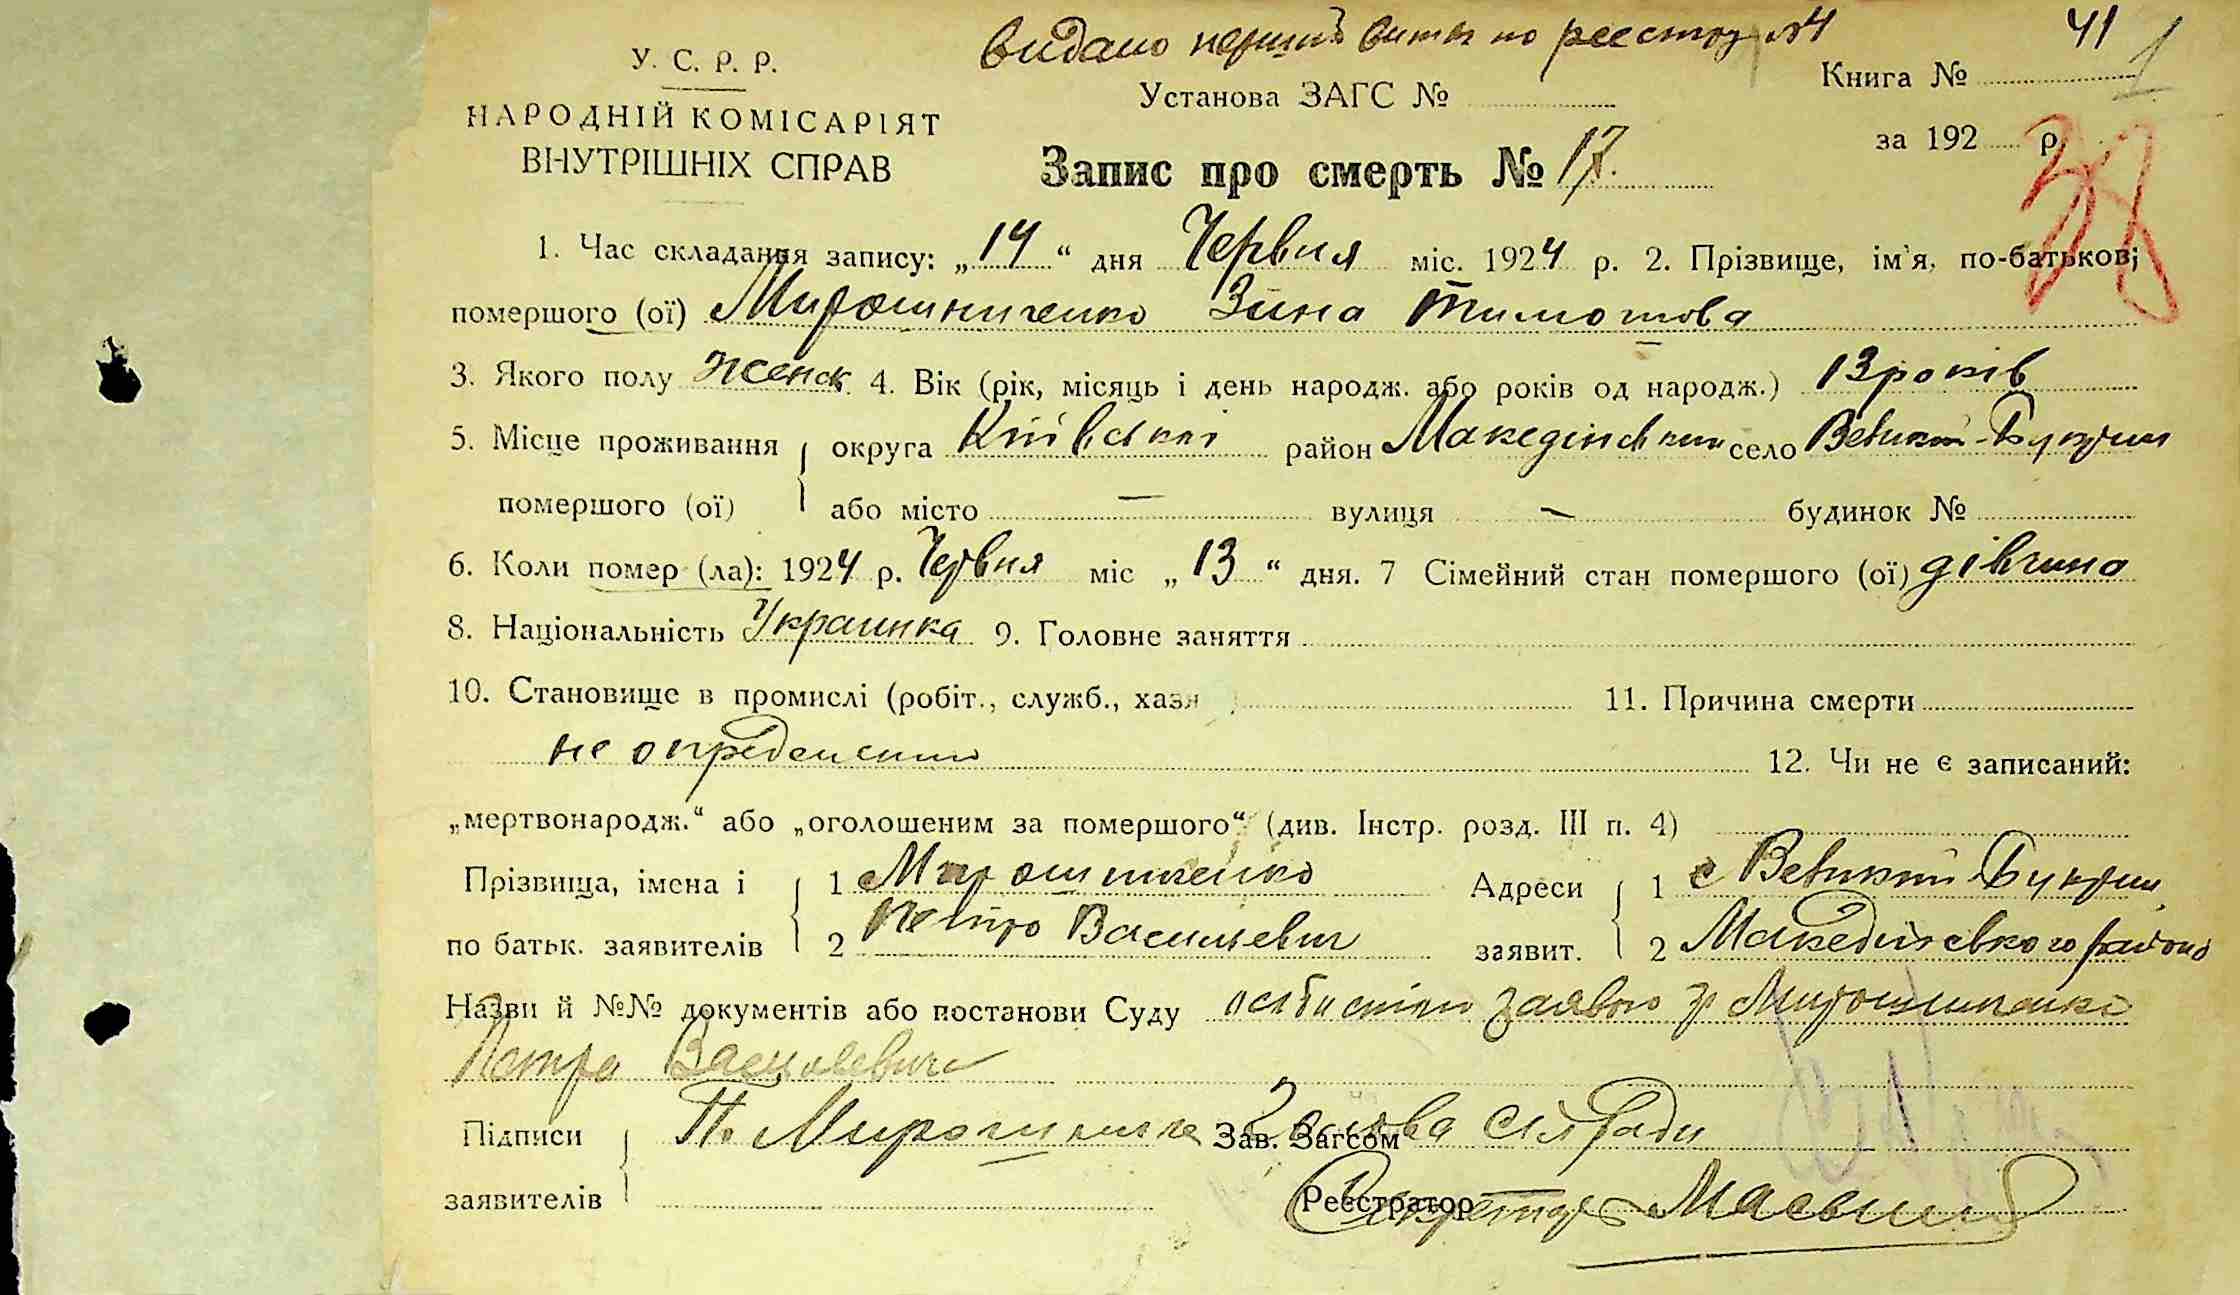 видано перший витяг по реєстру №4
41
1
У. С. Р. Р.
НАРОДНІЙ КОМІСАРІЯТ
ВНУТРІШНІХ СПРАВ
Установа ЗАГС №
Книга №
за 192 р.
Запис про смерть № 17.
1. Час складання запису: „14“ дня Червня міс. 1924 р. 2. Прізвище, ім'я, по-батькові
помершого (ої) Мирошниченко Зина Тимотова
3. Якого полу Женск. 4. Вік (рік, місяць і день народж. або років од народж.) 13 років
5. Місце проживання округа Київськоі район село Великий-Букрин
помершого (ої) або місто — вулиця — будинок №
6. Коли помер (ла): 1924 р. Червня міс „13“ дня. 7 Сімейний стан помершого (ої) дівчина
8. Національність Украинка 9. Головне заняття
10. Становище в промислі (робіт., служб., хазя 11. Причина смерти
не 12. Чи не є записаний:
„мертвонародж.“ або „оголошеним за помершого“ (див. Інстр. розд. III п. 4)
Прізвища, імена і 1 Мирошниченко Адреси 1 с Великий Букрин
по батьк. заявителів 2 Петро Васильевич заявит. 2 району
Назви й №№ документів або постанови Суду заявою гр Мирошниченка
Петра Васильевича
Підписи П. Мирошниче Зав. Загсом Голова Сілради
заявителів Реєстратор Секретар